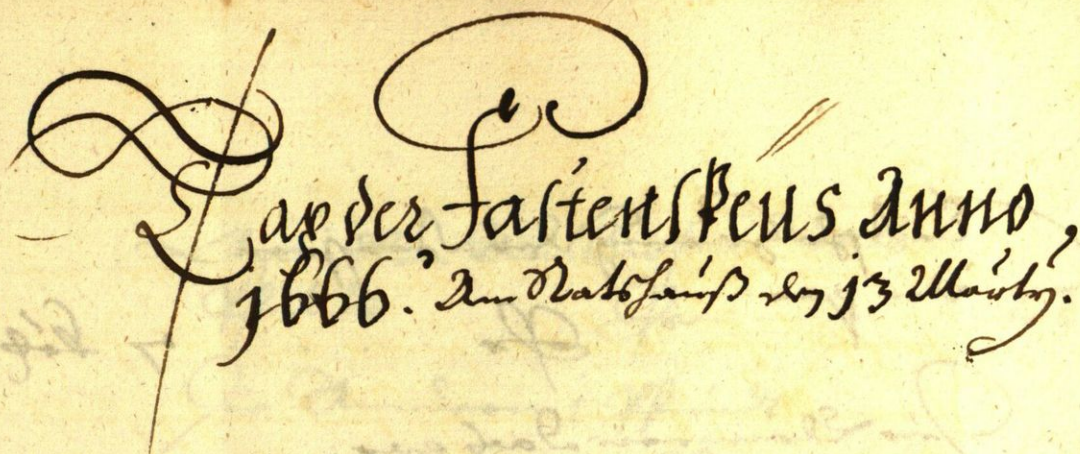 Tax der Fastenspeiis Anno
1666. Am Ratshauß den 13 Marty.